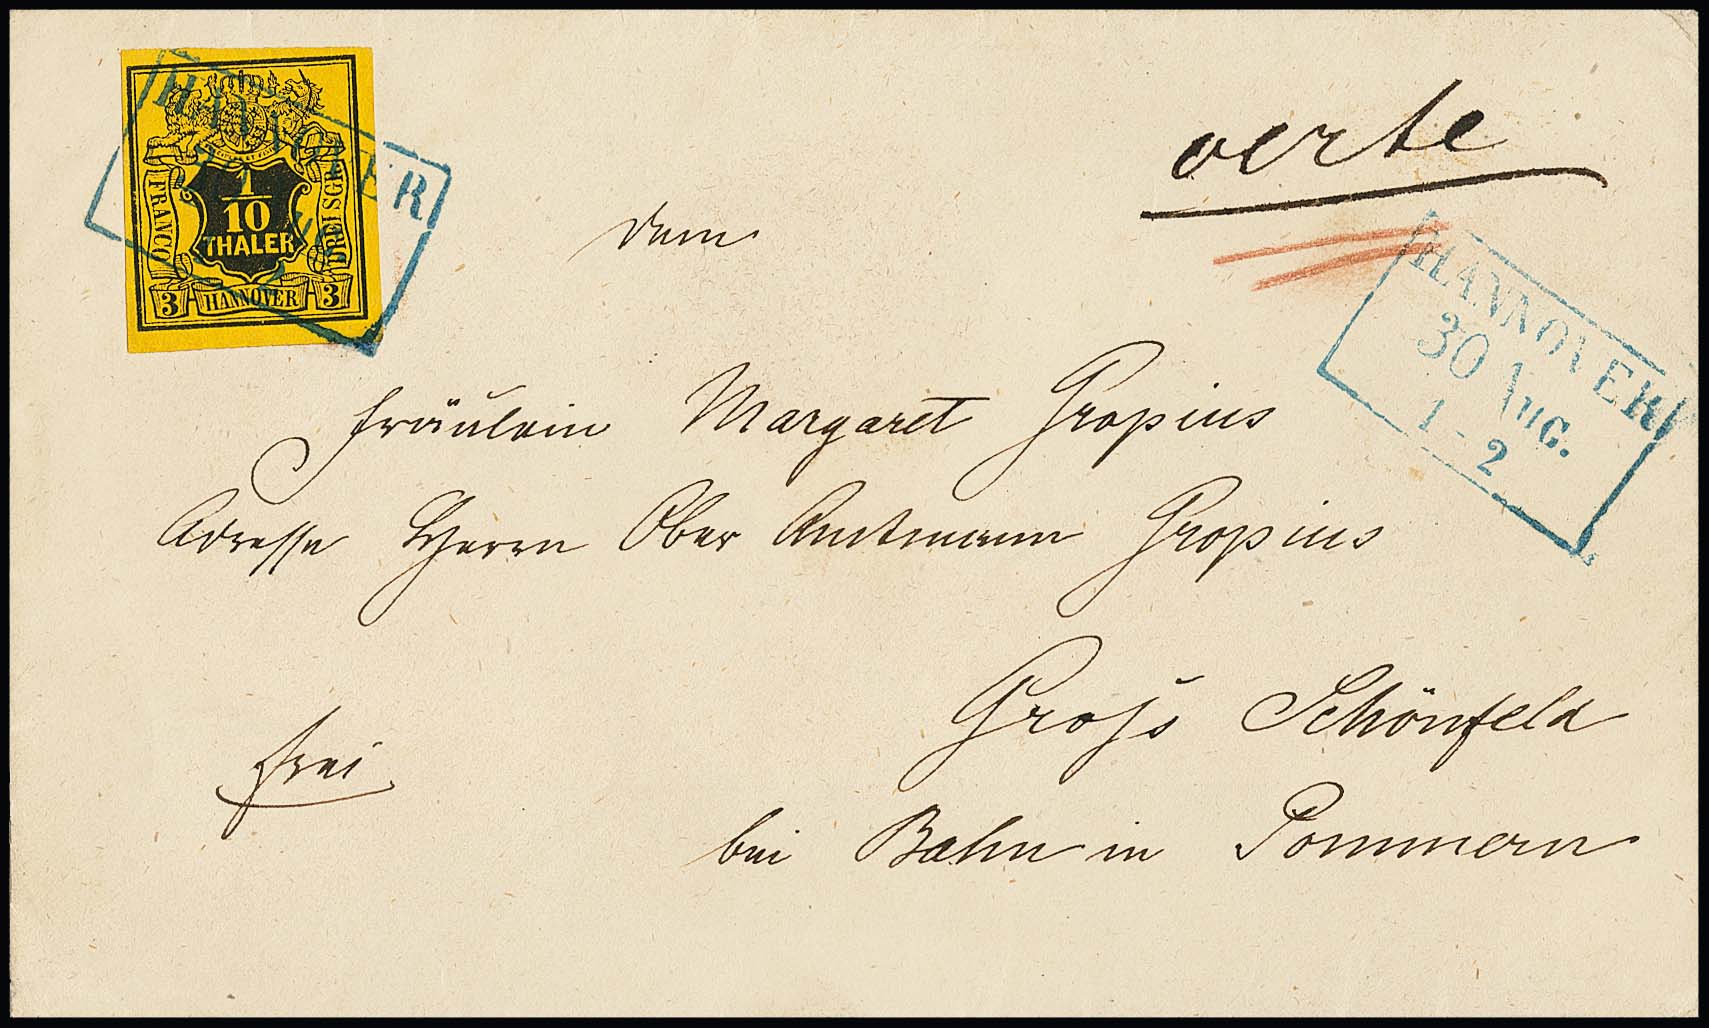 HANNOVER
FRANCO
1/10
THALER
DREI SGR
3 HANNOVER 3
oerte
HANNOVER
30 AUG.
1 - 2
dem
Fräulein Margaret Gropius
Adresse Herrn Ober Amtmann Gropius
Groß Schönfeld
frei
bei Bahn in Pommern